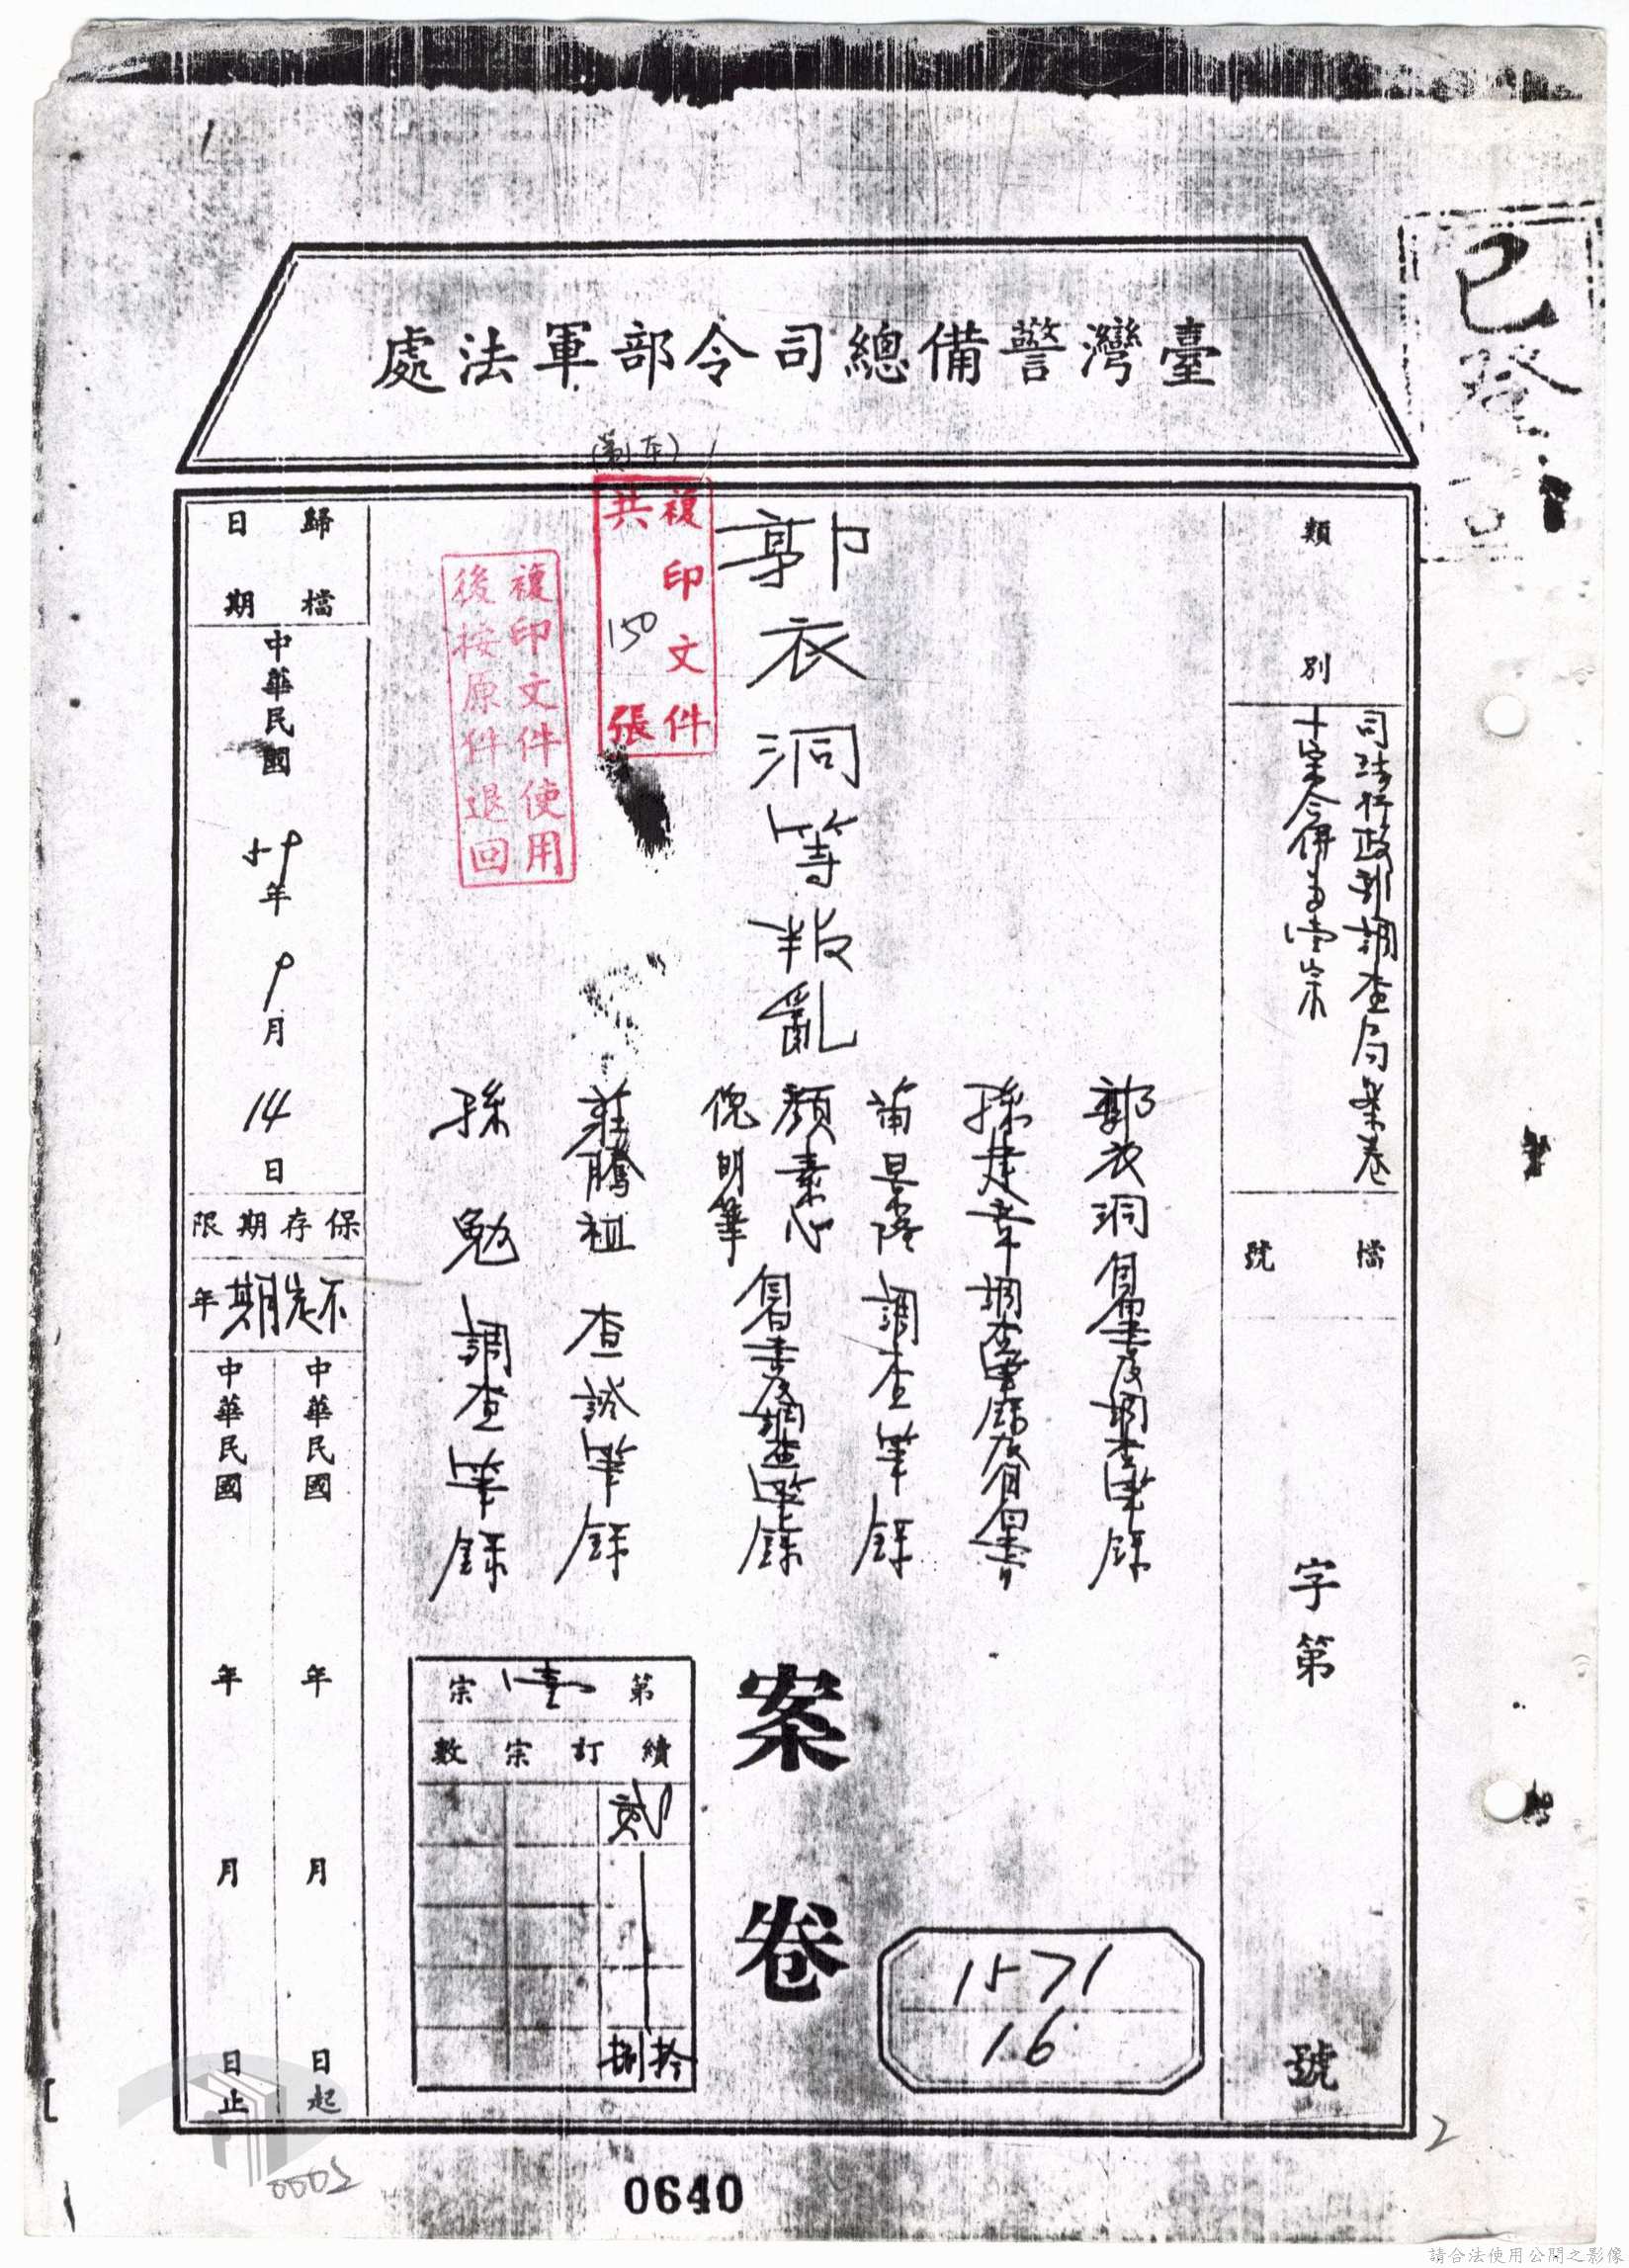 臺灣警備總司令部軍法處
(影本)
類別
司法行政部調查局案卷
十宗合併為壹宗
檔號
字第
號
郭衣洞等叛亂
郭衣洞自白書及調查筆錄
孫建章調查筆錄及自白書
調查筆錄
顏素心
倪明華
自白書及調查筆錄
莊騰祖 查證筆錄
孫勉 調查筆錄
案卷
複印文件
共150張
複印文件使用
後按原件退回
第壹宗
續訂宗數
貳
拾捌
1571
16
歸檔日期
中華民國
年9月14日
保存期限
不定期年
中華民國 年 月 日起
中華民國 年 月 日止
已登
2
0005
0640
請合法使用公開之影像